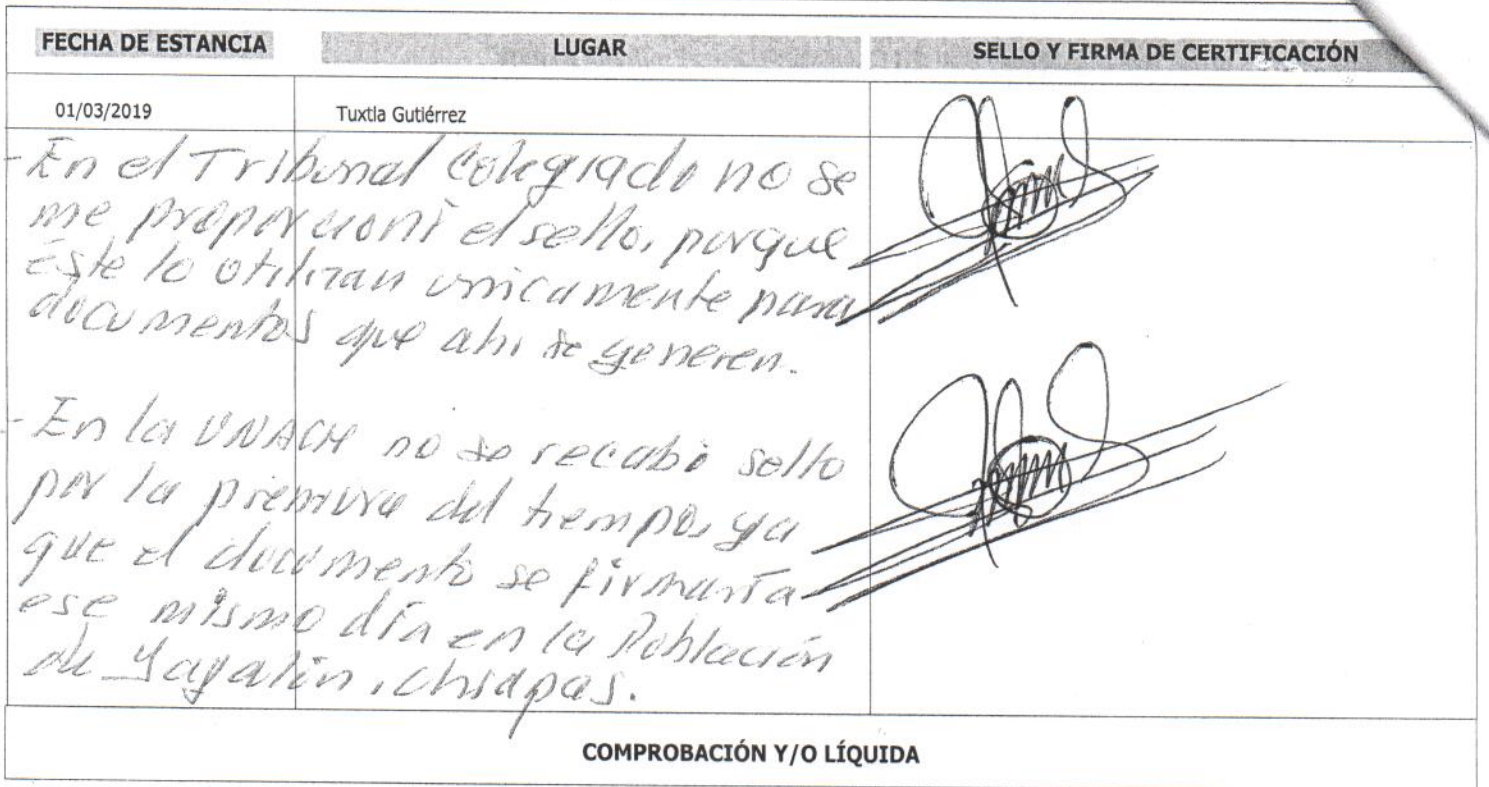 FECHA DE ESTANCIA LUGAR SELLO Y FIRMA DE CERTIFICACIÓN
01/03/2019 Tuxtla Gutiérrez
- En el Tribunal Colegiado no se
me proporcionó el sello, porque
éste lo utilizan unicamente para
documentos que ahi se generen.
- En la UNACH no se recabó sello
por la premura del tiempo, ya
que el documento se firmaría
ese mismo día en la Población
de Yajalón, Chiapas.
COMPROBACIÓN Y/O LÍQUIDA